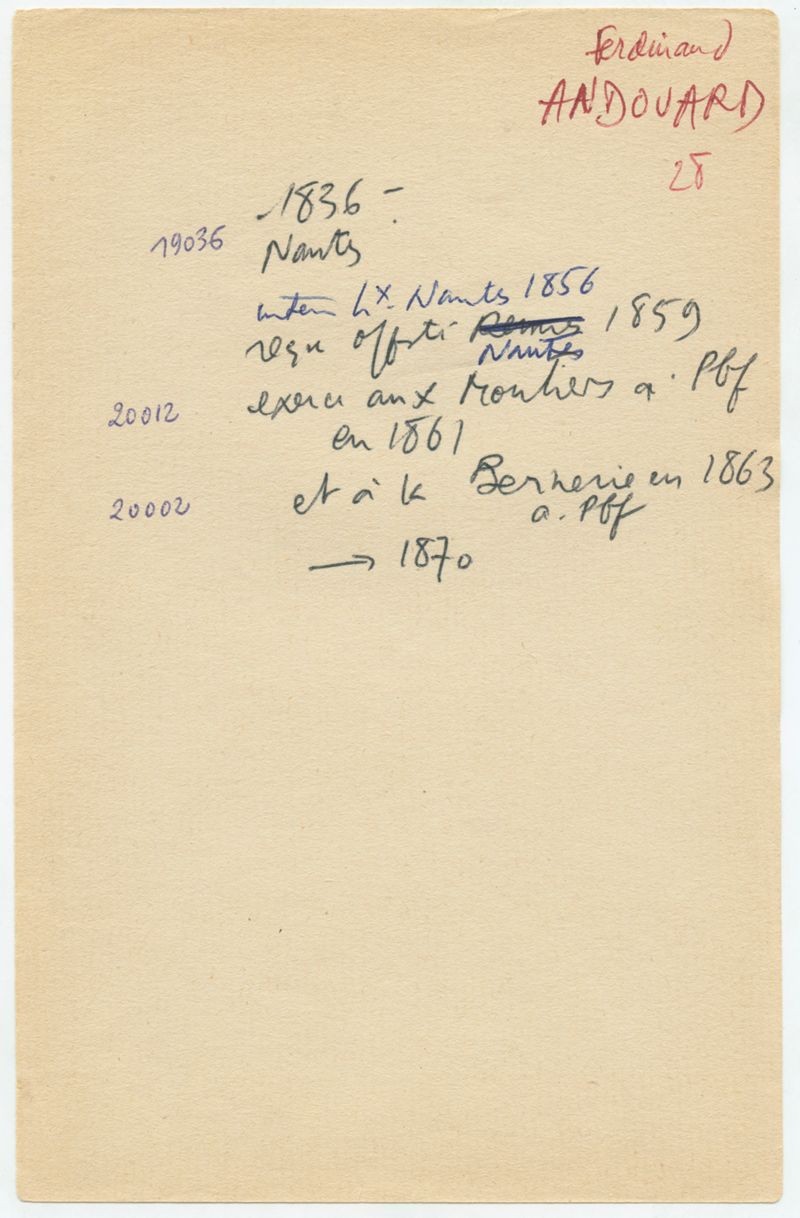 Ferdinand
ANDOUARD
28
1836 - .
19036
Nantes
intern hx. Nantes 1856
reçu offi 1859
Nantes
20012 exerce aux Moutiers a. Pbf
en 1861
et à la Bernerie en 1863
20002 a. Pbf
→ 1870